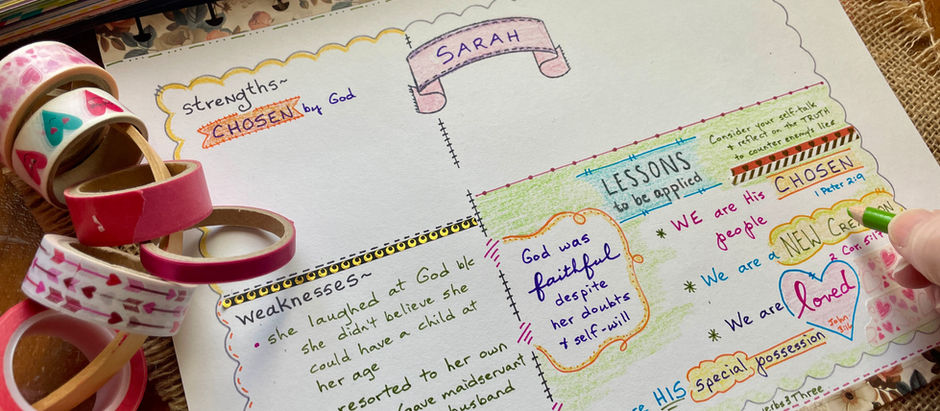 SARAH
strengths~
CHOSEN by God
weaknesses~
she laughed at God b/c
she didn't believe she
could have a child at
her age
resorted to her own
gave maidservant
husband
God was
faithful
despite
her doubts
& self-will
LESSONS
to be applied
Consider your self-talk
& reflect on the TRUTH
to counter enemy's lies
* WE are His CHOSEN
people
1 Peter 2:9
* We are a NEW
2 Cor. 5:17
* We are loved
John 3:16
HIS special possession